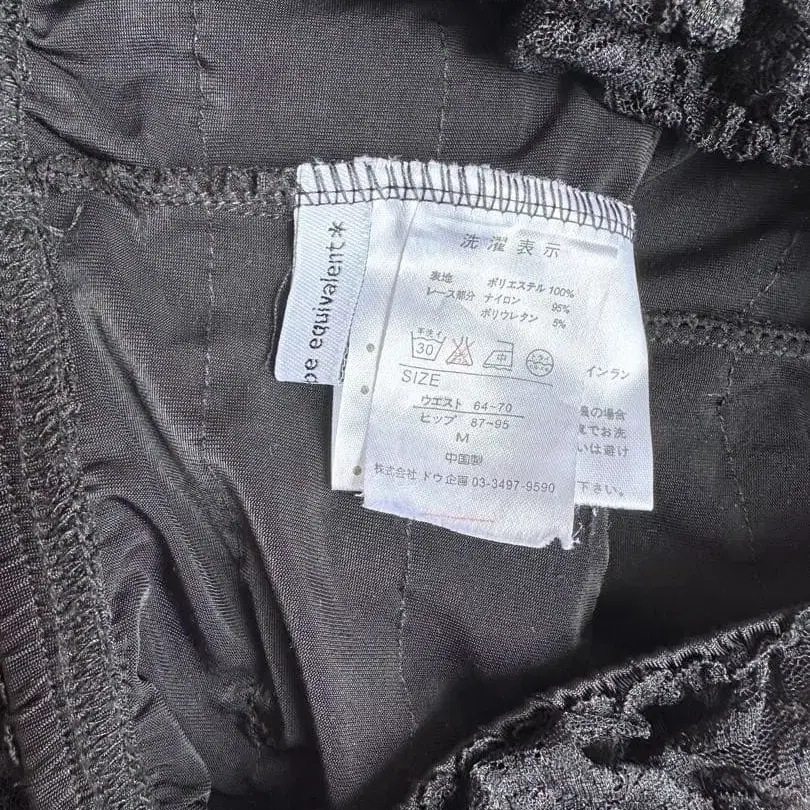 pe equivalent*
洗濯表示
表地 ポリエステル 100%
レース部分 ナイロン 95%
ポリウレタン 5%
手洗イ
30
中
ドライ
SIZE
ウエスト 64~70
ヒップ 87~95
M
中国製
株式会社 ドウ企画 03-3497-9590
インラン
の場合
でお洗
いは避け
下さい。